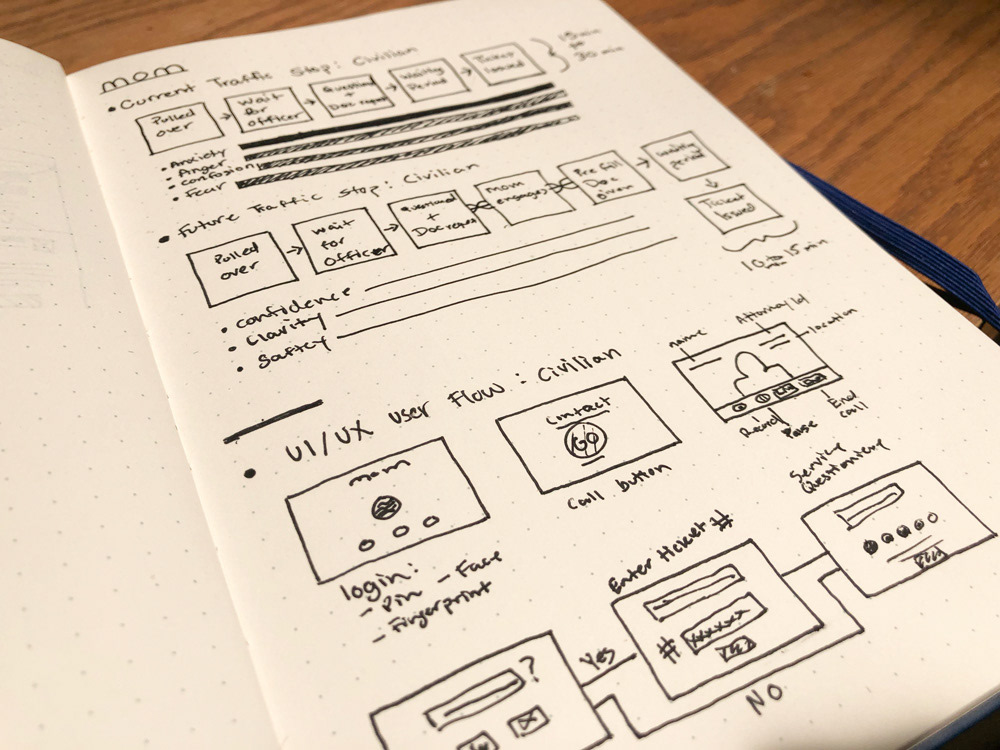 mom
• Current Traffic Stop: Civilian
Pulled over
wait for officer
Question + Doc request
Waiting Period
Ticket issued
15 min to 30 min
• Anxiety
• Anger
• confusion
• Fear
• Future Traffic Stop: Civilian
Pulled over
wait for officer
Questioned + Doc request
mom engages
Pre fill Doc given
Waiting period
Ticket Issued
10 to 15 min
• confidence
• Clarity
• Saftey
• UI/UX user Flow: Civilian
mom
login:
- Pin - Face
- Fingerprint
Contact
GO
Call button
name
Attorney Id
location
Record
Pause
End call
Service
Enter ticket #
# xxxxxx
Yes
?
Yes
NO